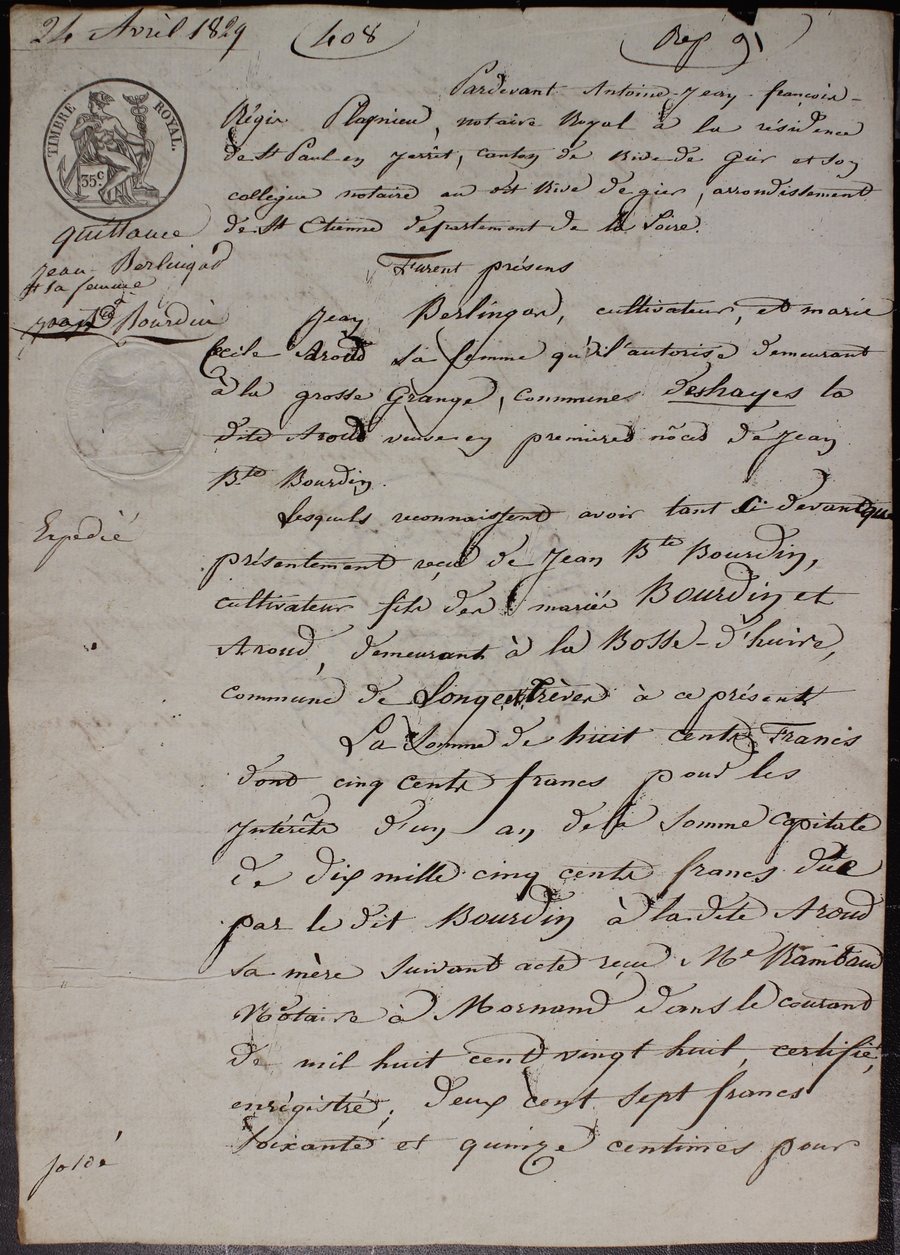 24 Avril 1829
408
Rep 91
TIMBRE ROYAL.
35 c
Pardevant Antoine-Jean-françois-
Régis Plagnieu, notaire Royal à la résidence
de St Paul en Jarrêt, canton de Rive de Gier et son
collègue notaire au dit Rive de gier, arrondissement
de St Etienne département de la Loire.
quittance
Jean Berlingard
et sa femme
à
Bourdin
Furent présens
Jean Berlingar, cultivateur, et marie
Cécile Aroud sa femme qu'il autorise demeurant
à la grosse Grange, communes deshayes la
dite Aroud veuve en premières nôces de Jean
Bte Bourdin.
Lesquels reconnaissent avoir tant ci devant que
Expedié
présentement reçu de Jean Bte Bourdin,
cultivateur fils des mariés Bourdin et
Aroud, demeurant à la Bosse-d'huire,
commune de Longes et Trèves à ce présent
La Somme de huit cents Francs
dont cinq cents francs pour les
Intérêts d'un an de la somme capitale
de dix mille cinq cents francs due
par le dit Bourdin à la dite Aroud
sa mère suivant acte reçu Me Rambaud
Notaire à Mornand dans le courant
de mil huit cent vingt huit, certifié,
enrégistré; deux cent sept francs
soixante et quinze centimes pour
soldé